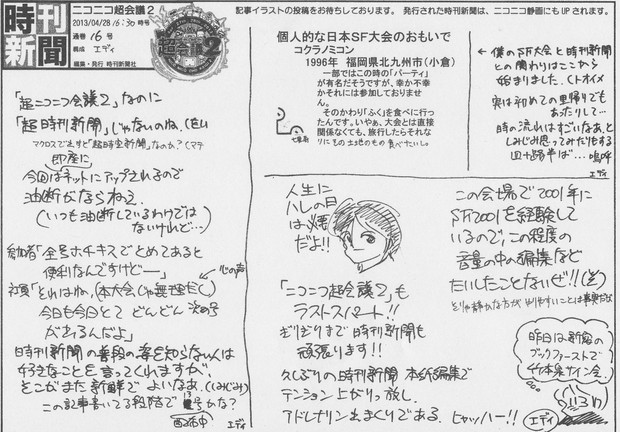 時刊新聞
ニコニコ超会議2
2013/04/28 16:30 時号
通巻 16 号
編成 エディ
編集・発行 時刊新聞社
超会議2
記事イラストの投稿をお待ちしております。 発行された時刊新聞は、ニコニコ静画にも UP されます。
「超ニコニコ会議2」なのに
「超時刊新聞」じゃないのね、
今回は即座にネットにアップされるので
油断がならねえ
(いつも油断しているわけでは
ないけれど…)
参加者「全号ホチキスでとめてあると
便利なんですけどー」
心の声
社員「それはね、(本大会じゃ無理だし)
今日も今日とて どんどん 次の号
があるんだよ」
時刊新聞の普段の姿を知らない人は
好きなことを言ってくれますが、
そこがまた新鮮でよいなあ、(しみじみ)
この記事書いてる段階で 13号かな?
エディ
個人的な日本SF大会のおもいで
コクラノミコン
1996年 福岡県北九州市(小倉)
一部ではこの時の「パーティ」
が有名だそうですが、幸か不幸
かそれには参加しておりませ
ん。
そのかわり「ふく」を食べに行っ
たんです。いやぁ、大会とは直接
関係なくても、旅行したらそれな
りにその土地のもの食べたいし。
僕のSF大会と時刊新聞
との関わりはここから
始まりました、(トオイメ
実は初めての里帰りでも
あったりして…
時の流れはすごいなあ、と
しみじみ思ってみたりする
四十路半ば…嗚呼
エディ
人生に
ハレの日
は必要
だよ!!
「ニコニコ超会議2」も
ラストスパート!!
ぎりぎりまで時刊新聞も
頑張ります!!
久しぶりの時刊新聞 本紙編集で
テンション上がりっ放し、
アドレナリン出まくりである、 ヒャッハー!!
エディ
この会場で2001年に
SF2001を経験して
いるので、この程度の
音量の中の編集など
たいしたことないぜ!!
昨日は新宿の
ブックファーストで
竹本泉サイン会